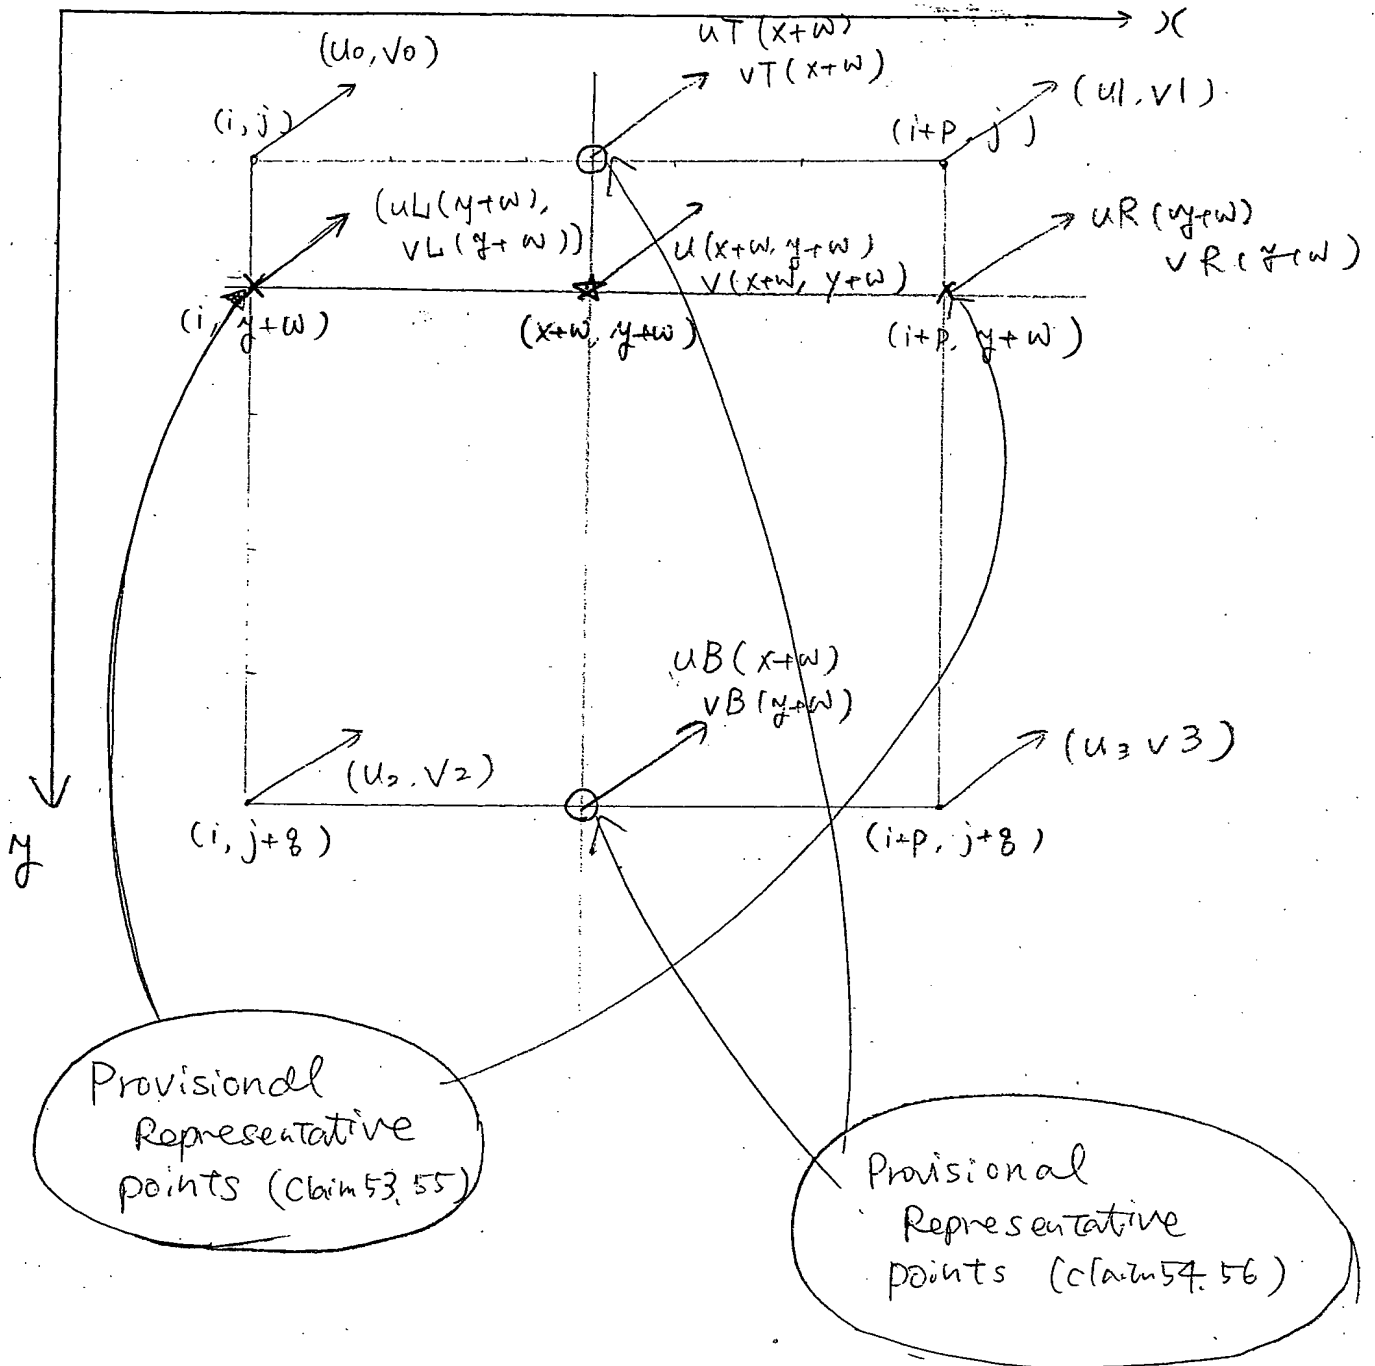 x
(u0, v0)
uT(x+w)
vT(x+w)
(u1, v1)
(i, j)
(i+p, j)
(uL(y+w),
vL(y+w))
u(x+w, y+w)
v(x+w, y+w)
uR(y+w)
vR(y+w)
(i, y+w)
(x+w, y+w)
(i+p, y+w)
uB(x+w)
vB(y+w)
(u2, v2)
(u3 v3)
y
(i, j+q)
(i+p, j+q)
Provisional
Representative
points (Claim 53, 55)
Provisional
Representative
points (claim 54, 56)